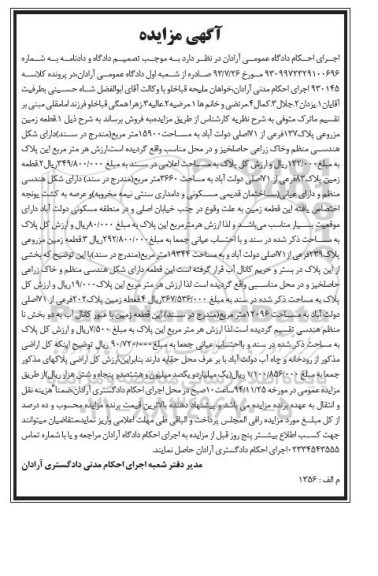 آگهی مزایده
اجرای احکام دادگاه عمومی آرادان در نظر دارد به موجب تصمیم دادگاه و دادنامه به شماره
۹۳۰۹۹۷۲۳۲۹۱۰۰۶۹۶ مورخ ۹۳/۷/۲۶ صادره از شعبه اول دادگاه عمومی آرادان،در پرونده کلاسه
۹۳۰۱۴۵ اجرای احکام مدنی آرادان،خواهان ملیحه قباخلو با وکالت آقای ابوالفضل شاه حسینی بطرفیت
آقایان۱.یزدان۲.جلال۳.کمال۴.مرتضی و خانم ها ۱.مرضیه۲.عالیه۳.زهرا همگی قباخلو فرزند امامقلی مبنی بر
تقسیم ماترک متوفی به شرح نظریه کارشناس از طریق مزایده،به فروش برساند به شرح ذیل ۱.قطعه زمین
مزروعی پلاک۱۳۷فرعی از ۷۱اصلی دولت آباد به مساحت۱۵۹۰۰متر مربع(مندرج در سند)دارای شکل
هندسی منظم وخاک زراعی حاصلخیز و در محل مناسب واقع گردیده است،ارزش هر متر مربع این پلاک
به مبلغ۲۲/۰۰۰ریال و ارزش کل پلاک به مساحت اعلامی در سند به مبلغ ۳۴۹/۸۰۰/۰۰۰ریال۲.قطعه
زمین پلاک۸۳فرعی از ۷۱اصلی دولت آباد به مساحت۳۶۶۰متر مربع(مندرج در سند) دارای شکل هندسی
منظم و دارای عیانی(ساختمان قدیمی مسکونی و دامداری سنتی نیمه مخروبه)و عرصه به کشت یونجه
اختصاص یافته این قطعه زمین به علت وقوع در جنب خیابان اصلی و در منطقه مسکونی دولت آباد دارای
موقعیت بسیار مناسب می‌باشد و لذا ارزش هرمترمربع این پلاک به مبلغ ۸۰/۰۰۰ریال و ارزش کل پلاک
به مساحت ذکر شده در سند و با احتساب عیانی جمعا به مبلغ ۲۹۲/۸۰۰/۰۰۰ریال ۳.قطعه زمین مزروعی
پلاک۲۳۹فرعی از ۷۱اصلی دولت آباد و به مساحت ۱۹۳۴۴متر مربع(مندرج در سند)با این توضیح که بخشی
از این پلاک در بستر و حریم کانال آب قرار گرفته است این قطعه دارای شکل هندسی منظم و خاک زراعی
حاصلخیز و در محل مناسبی واقع گردیده است لذا ارزش هر متر مربع این پلاک۱۹/۰۰۰ریال و ارزش کل
پلاک به مساحت ذکر شده در سند به مبلغ ۳۶۷/۵۳۶/۰۰۰ریال ۴.قطعه زمین پلاک۲۰۲فرعی از ۷۱اصلی
دولت آباد به مساحت ۱۲۰۹۶متر مربع(مندرج در سند) این قطعه زمین با عبور کانال آب به دو بخش نا
منظم هندسی تقسیم گردیده است.لذا ارزش هر متر مربع این پلاک به مبلغ۷/۵۰۰ریال و ارزش کل پلاک
به مساحت ذکر شده در سند و بااحتساب عیانی جمعا به مبلغ ۹۰/۷۲۰/۰۰۰ریال توضیح اینکه کل اراضی
مذکور از رودخانه و چاه آب دولت آباد با بر عرف محل حقابه دارند بنابراین،ارزش کل اراضی پلاکهای مذکور
جمعا به مبلغ ۱/۱۰۰/۸۵۶/۰۰۰ ریال(یک میلیاردو یکصد میلیون و هشتصدو پنجاه و شش هزار ریال)از طریق
مزایده عمومی در مورخه ۹۴/۱۱/۲۵ساعت۱۰صبح در محل اجرای احکام دادگستری آرادان،ضمناً هزینه نقل
و انتقال به عهده برنده مزایده می باشد و پیشنهاد دهنده بالاترین قیمت برنده مزایده محسوب و ده درصد
از کل مبلغ مورد مزایده رافی المجلس پرداخت و الباقی ظی مهلت اعلامی واریز نماید،متقاضیان میتوانند
جهت کسب اطلاع بیشتر پنج روز قبل از مزایده به اجرای احکام دادگاه آرادان مراجعه و یا با شماره تماس
۰۲۳۳۴۵۴۳۵۵۵اجرای احکام دادگستری آرادان حاصل نمایند.
مدیر دفتر شعبه اجرای احکام مدنی دادگستری آرادان
م الف : ۱۳۵۶